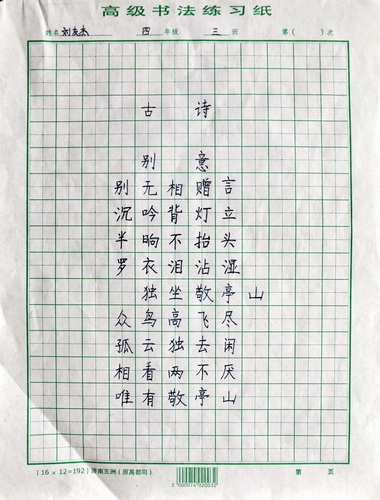 高级书法练习纸
姓名 刘友杰 四 年级 三 班 第( )次
古 诗
别 意
别无相赠言
沉吟背灯立
半晌不抬头
罗衣泪沾湿
独坐敬亭山
众鸟高飞尽
孤云独去闲
相看两不厌
唯有敬亭山
(16×12=192) 济南五洲(原高都司) 第 页
2 000074 020032